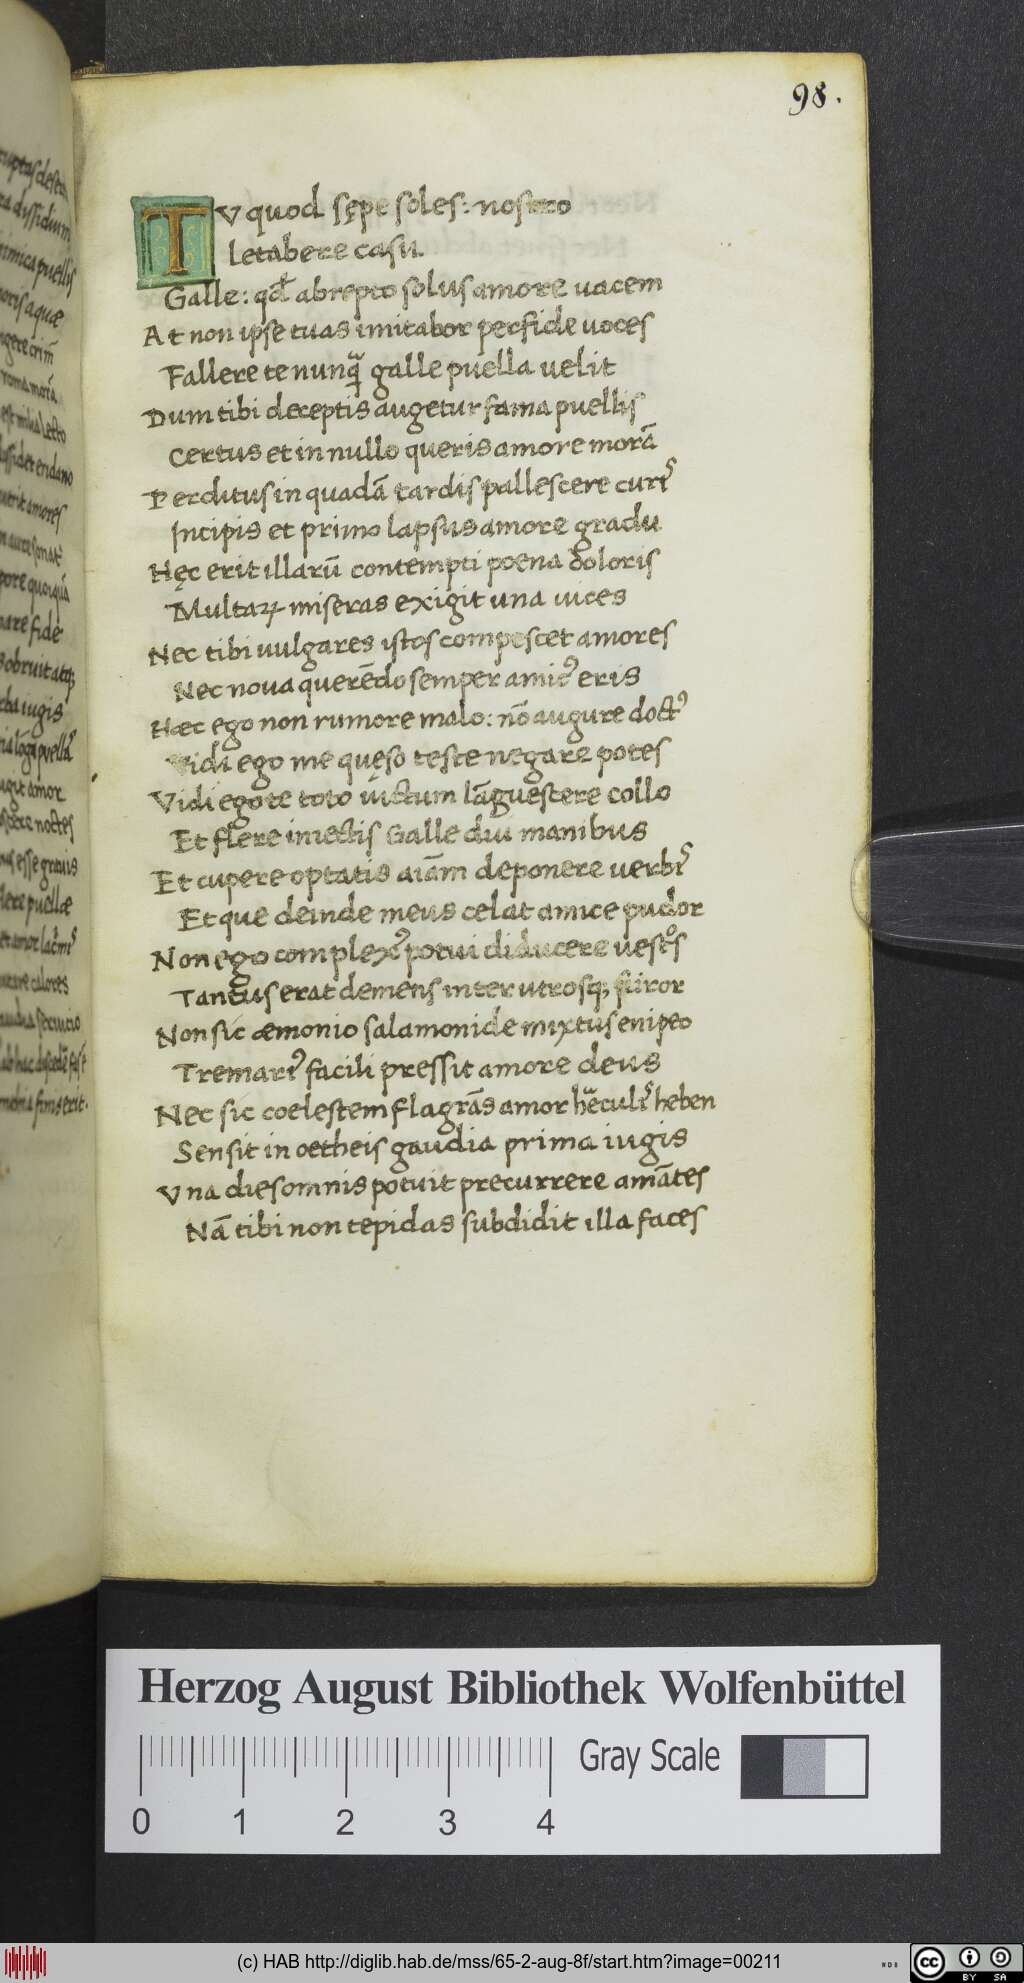 98.
TV quod sępe soles: nostro
letabere casu.
Galle: qđ abrepto solus amore uacem
At non ipse tuas imitabor perfide uoces
Fallere te nunq̃ galle puella uelit
Dum tibi deceptis augetur fama puellis
Certus et in nullo queris amore morã
Perditus in quadã tardis pallescere curis
Incipis et primo lapsus amore gradu
Hęc erit illarũ contempti poena doloris
Multaꝝ miseras exigit una uices
Nec tibi uulgares istos compescet amores
Nec noua querẽdo semper amic᾿ eris
Hæc ego non rumore malo: nõ augure doct᾿
Vidi ego me quęso teste negare potes
Vidi ego te toto uictum lãguescere collo
Et flere iniectis Galle diu manibus
Et cupere optatis aiãm deponere uerbis
Et que deinde meus celat amice pudor
Non ego complex᾿ potui diducere uestos
Tantus erat demens inter utrosq; furor
Non sic æmonio salamonide mixtus enipeo
Tremaris facili pressit amore deus
Nec sic coelestem flagrãs amor hæculis heben
Sensit in oetheis gaudia prima iugis
Vna dies omnis potuit precurrere amãtes
Nã tibi non tepidas subdidit illa faces
Herzog August Bibliothek Wolfenbüttel
Gray Scale
0 1 2 3 4
(c) HAB http://diglib.hab.de/mss/65-2-aug-8f/start.htm?image=00211
cc BY SA